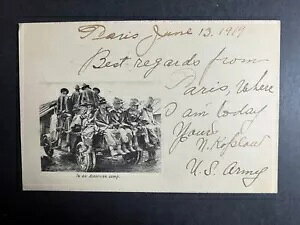 Paris June 13. 1919
Best regards from
Paris, Where
I am today
Yours
N.
U.S. Army
In an American camp.